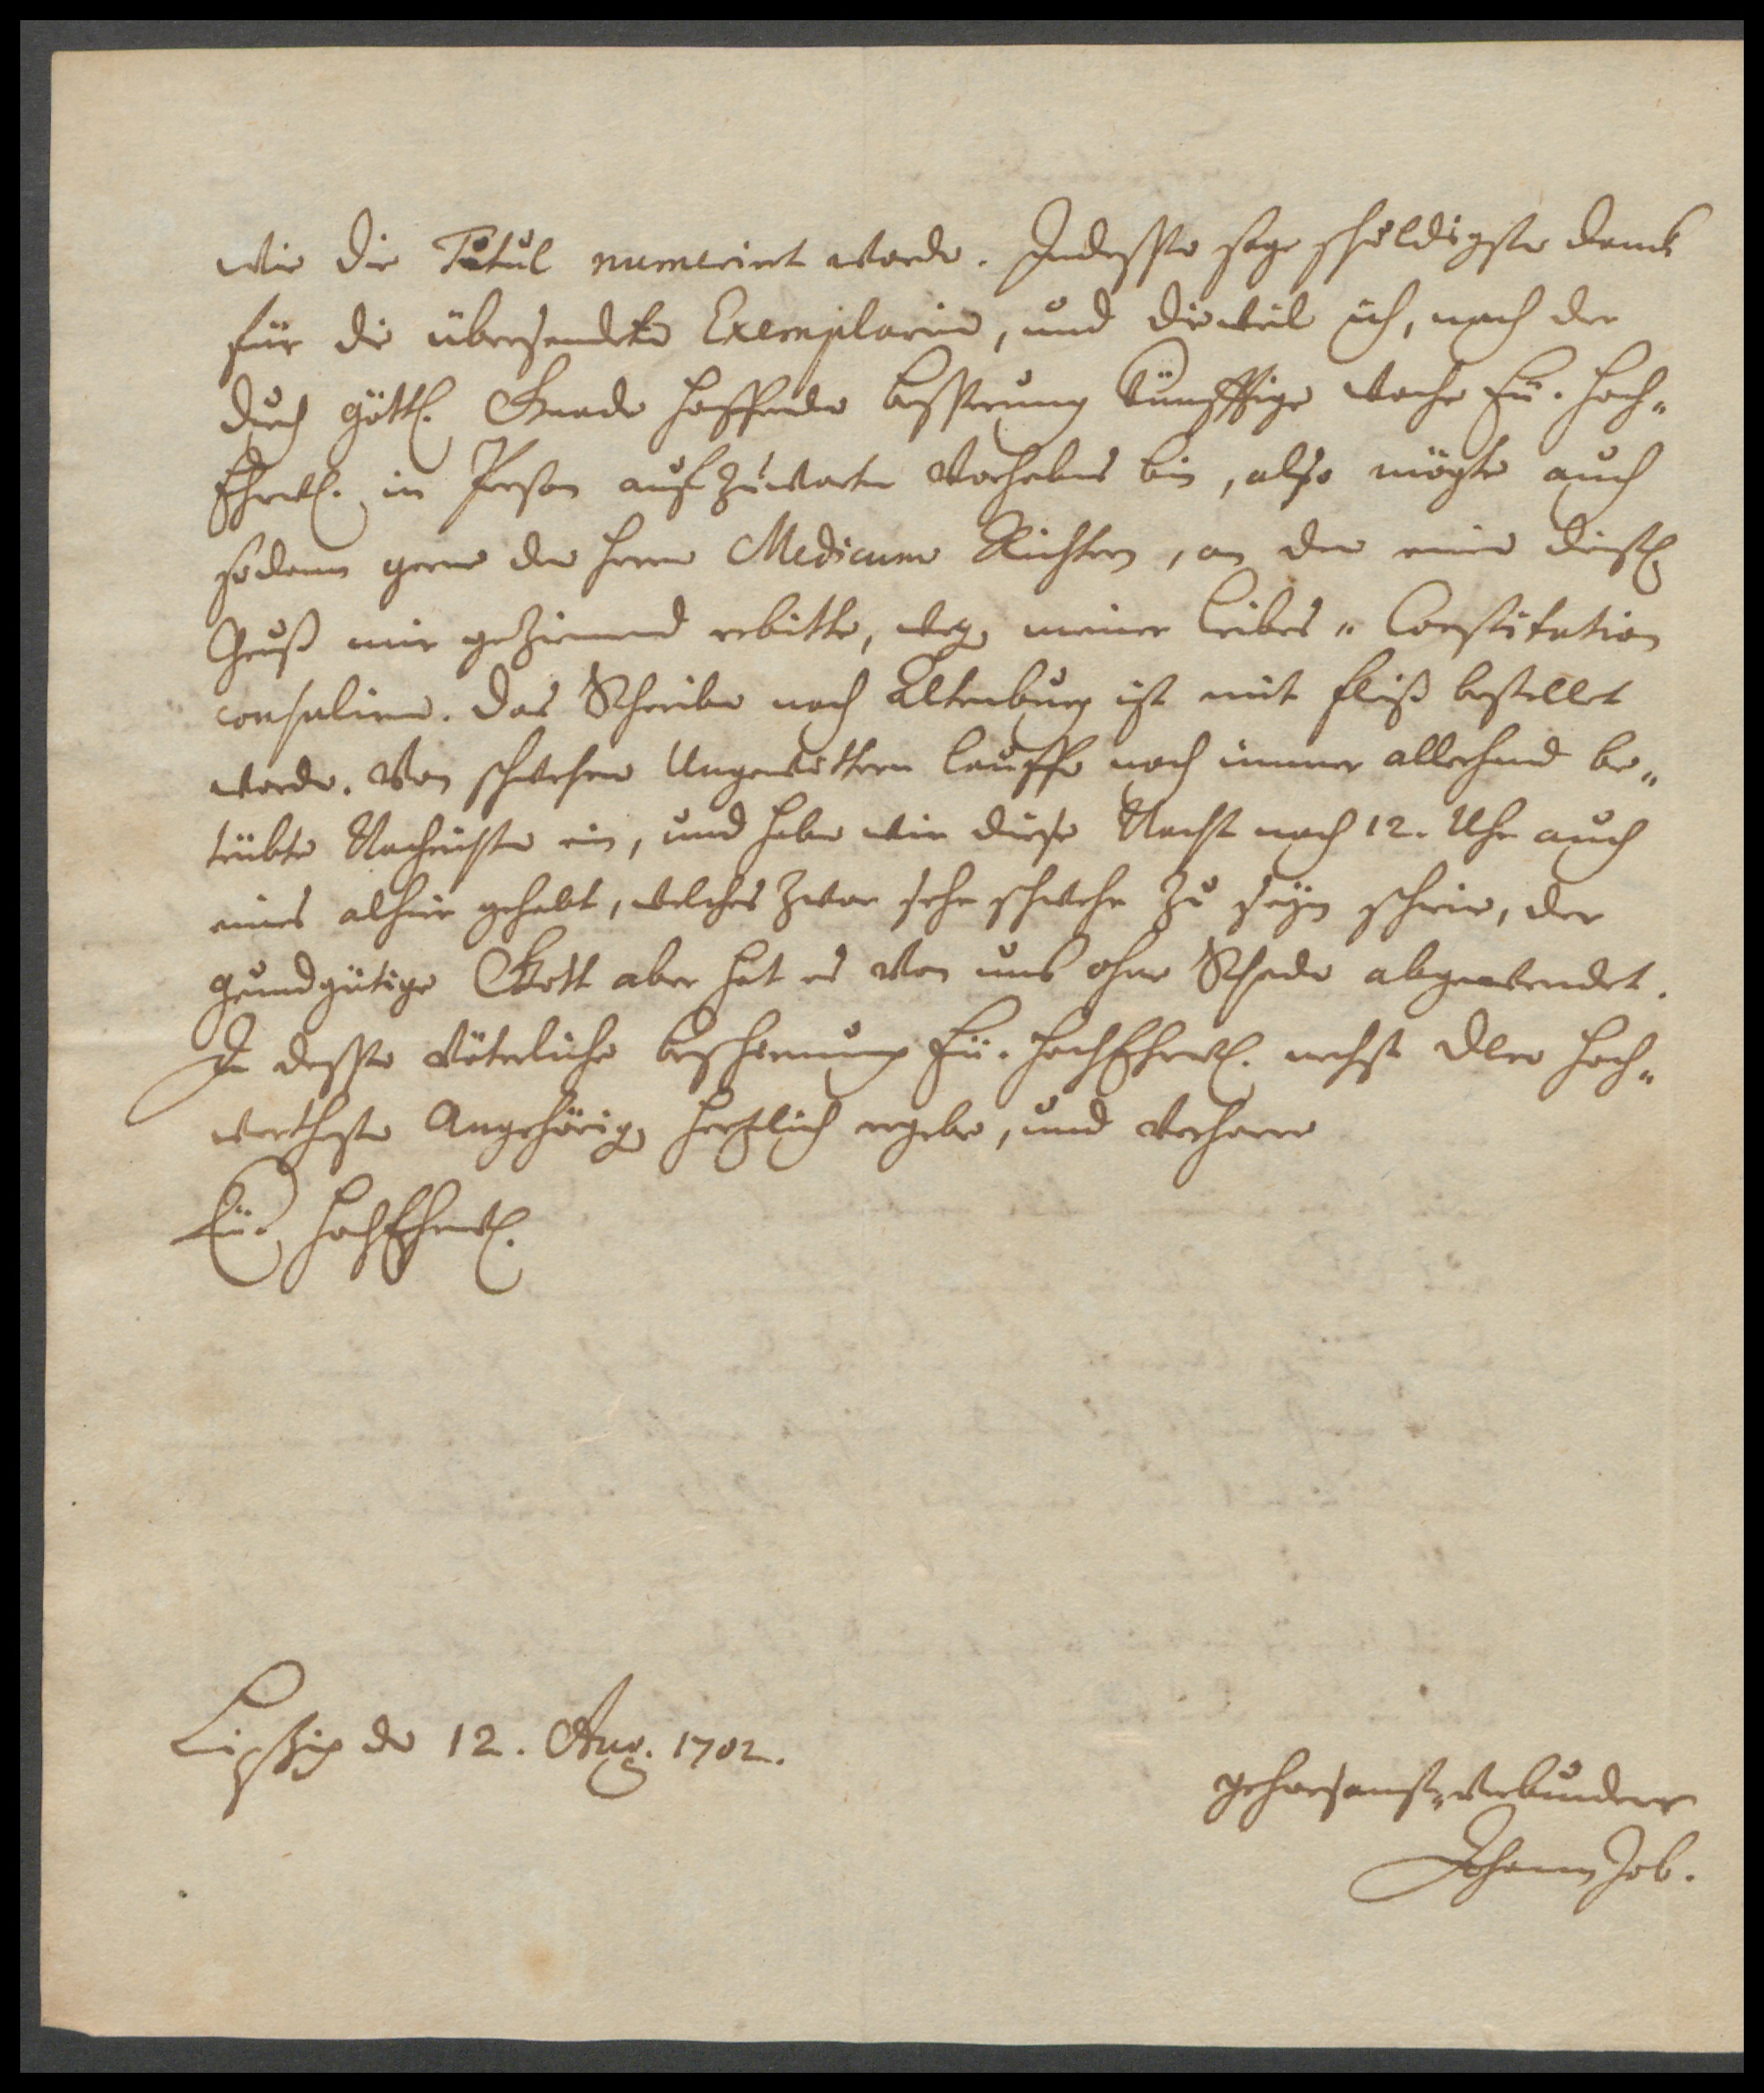 wie die Titul numerirt worden. Indeßen sage schuldigsten danck
für die übersendeten Exemplarien, und dieweil ich, nach der
durch göttl. Gnade hoffenden beßerung künfftige woche Eü. Hoch„
Ehrwl. in Person aufzuwarten Vorhabens bin, also mögte auch
sodann gerne den Herrn Medicum Richtern, an den einen dienstl.
Gruß mir geziemend erbitte, weg. meiner Leibes„ Constitution
consuliren. Das Schreiben nach Altenburg ist mit fleiß bestellet
worden. Von schwehren Ungewittern lauffen noch immer allerhand be„
trübte Nachrichten ein, und haben wir diese Nacht nach 12. Uhr auch
eines alhier gehabt, welches zwar sehr schwehr zu seyn schien, der
grundgütige Gott aber hat es von uns ohne Schaden abgewendet.
In deßen Väterliche beschirmung Eü. HochEhrwl. nechst Dero Hoch„
werthesten Angehörig. hertzlich ergebe, und verharre
Eü. HochEhrwl.
Leipzig den 12. Aug. 1702.
gehorsamst„verbundener
Johann Job.